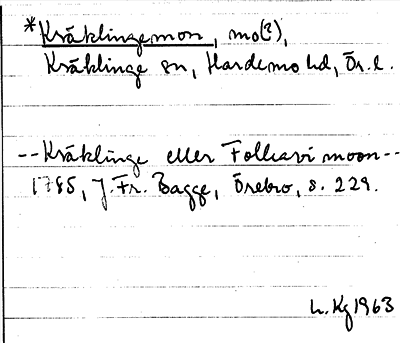 *Kräklingemon, mo(?),
Kräklinge sn, Hardemo hd, Ör. l.
--Kräklinge eller Folkavi moon--
1785, J. Fr. Bagge, Örebro, s. 229.
L. Kg 1963